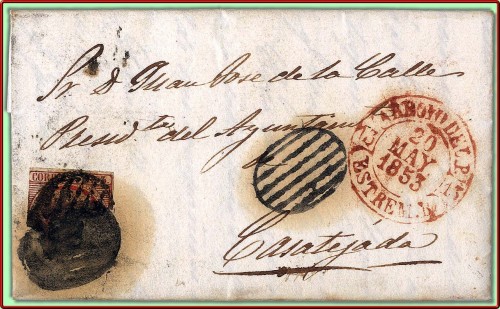 Sr. D. Juan Jose de la Calle
Presid.te del Ayuntam.to
de
Casatejada
CORREOS
ARROYO DEL P.
20
MAY
1853
ESTREM.